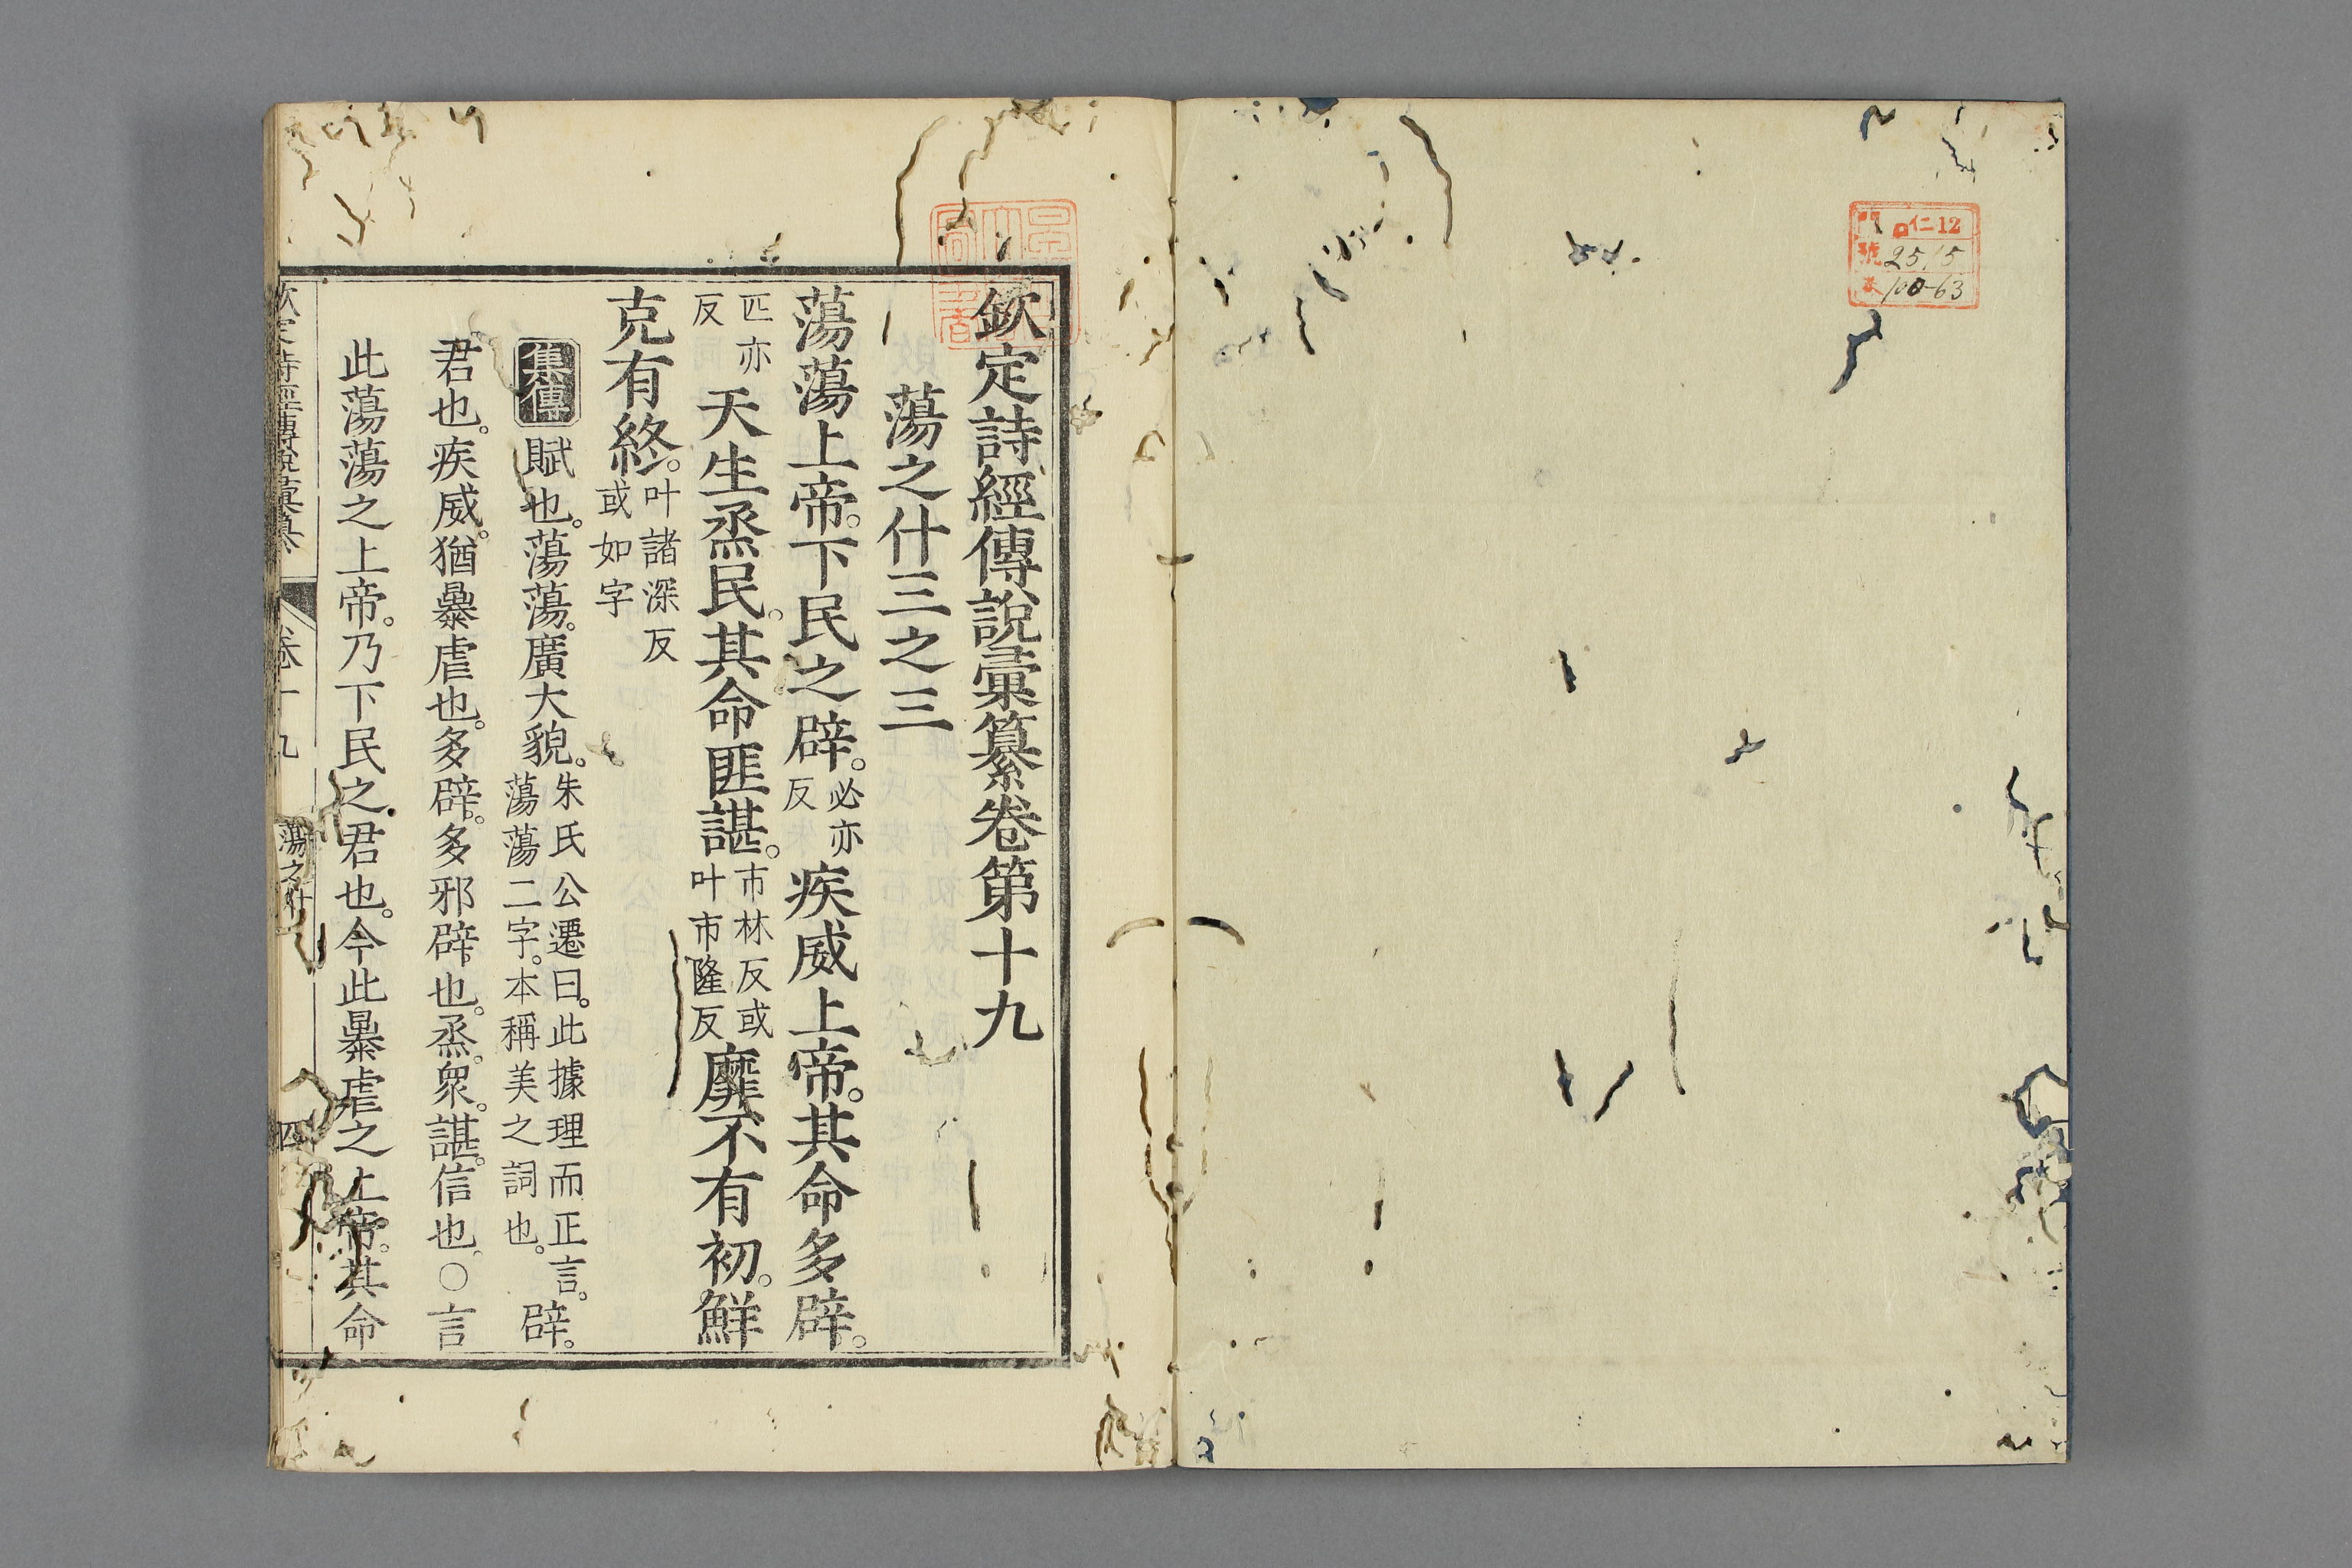 門 仁12
號 2515
100-63
欽定詩經傳說彙纂卷第十九
蕩之什三之三
蕩蕩上帝。下民之辟。必亦反疾威上帝。其命多辟。
匹亦反天生烝民。其命匪諶。市林反或叶市隆反靡不有初。鮮
克有終。叶諸深反或如字
集傳賦也。蕩蕩。廣大貌。朱氏公遷曰。此據理而正言。蕩蕩二字。本稱美之詞也。辟。
君也。疾威。猶暴虐也。多辟。多邪辟也。烝。衆。諶。信也。○言
此蕩蕩之上帝。乃下民之君也。今此暴虐之上帝。其命
欽定詩經傳說彙纂 卷十九 蕩之什 四